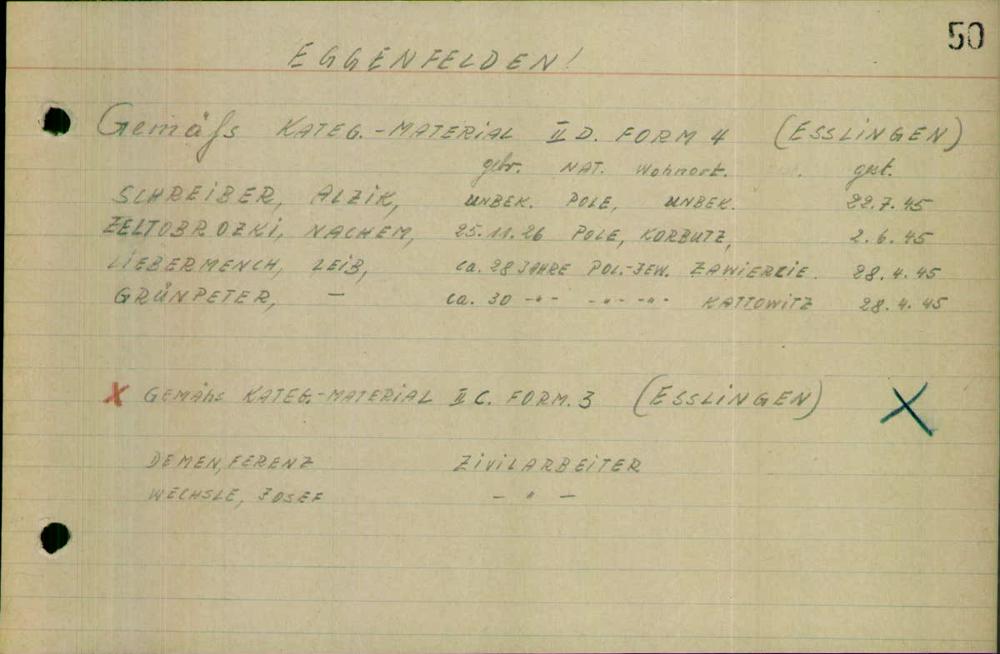 50
EGGENFELDEN!
Gemäß KATEG.-MATERIAL II D. FORM 4 (ESSLINGEN)
gebr. NAT. Wohnort. gest.
SCHREIBER, ALZIK, UNBEK. POLE, UNBEK. 22.7.45
ZELTOBROZKI, NACHEM, 25.11.26 POLE, KORBUTZ, 2.6.45
LIEBERMENCH, LEIB, ca. 28 JAHRE POL.-JEW. ZAWIERZIE. 28.4.45
GRÜNPETER, — ca. 30 -"- -"- -"- KATTOWITZ 28.4.45
X GEMÄß KATEG.-MATERIAL II C. FORM. 3 (ESSLINGEN) X
DEMEN, FERENZ ZIVILARBEITER
WECHSLE, JOSEF — " —